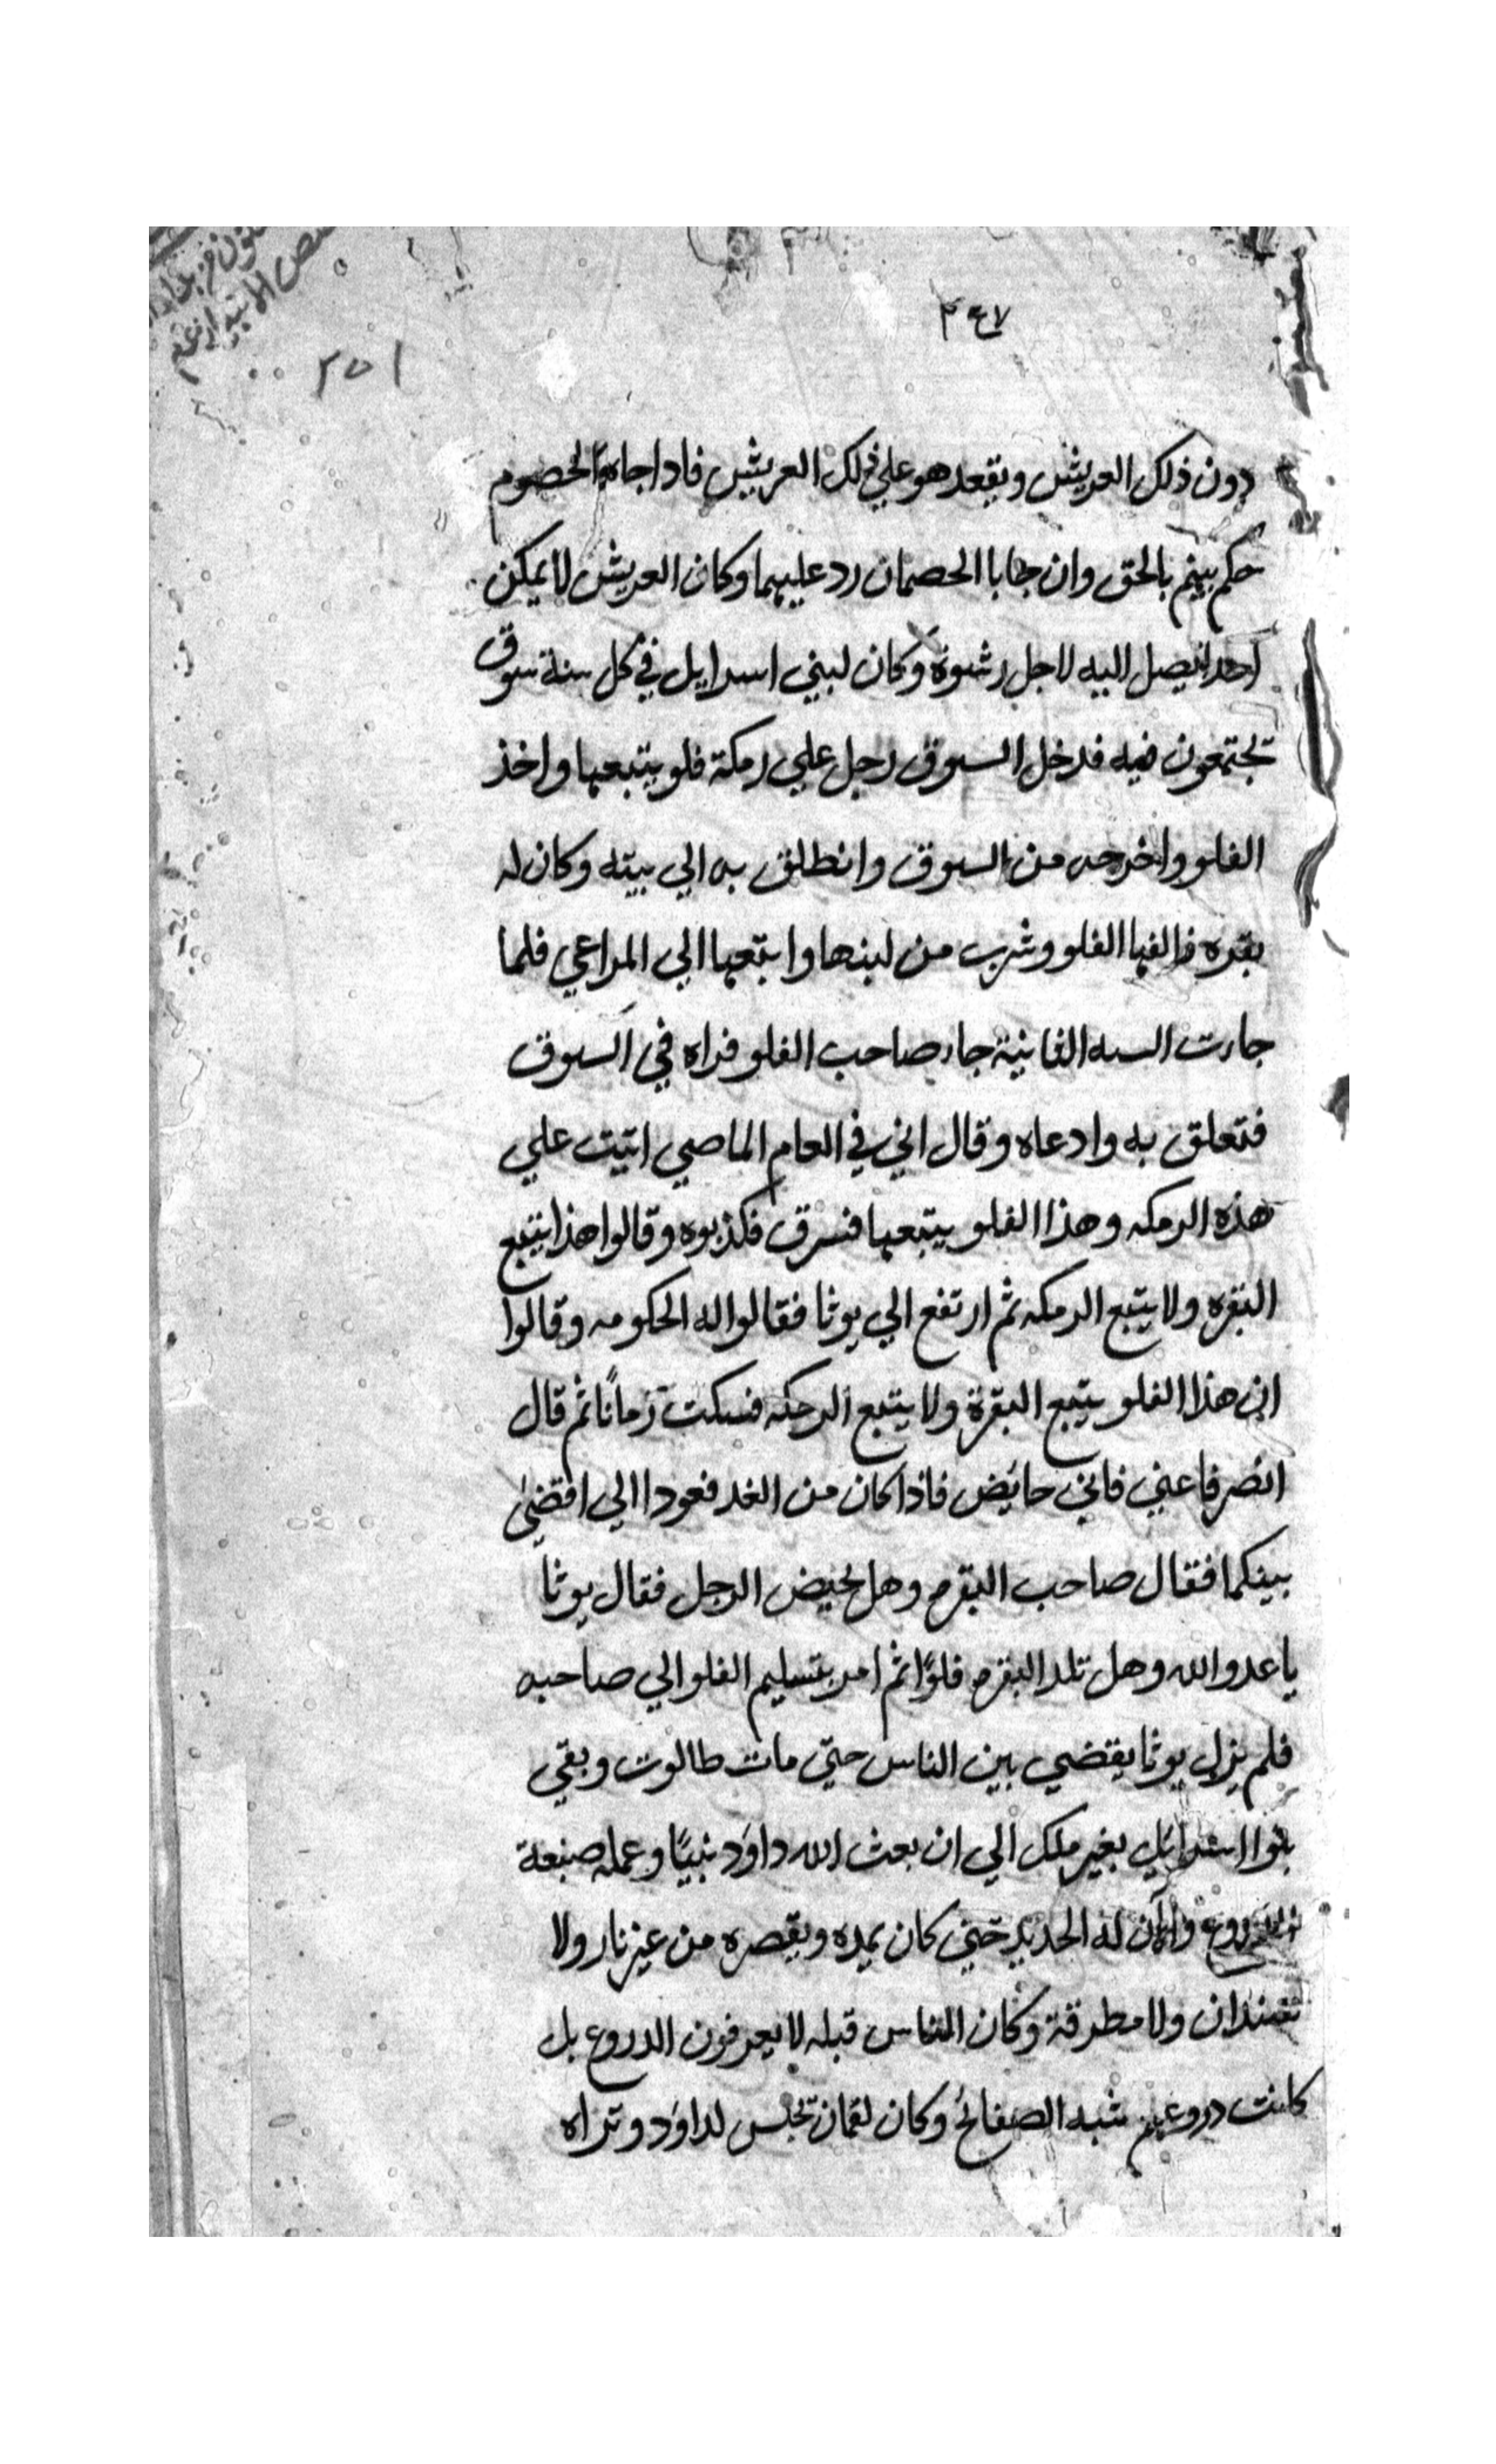 ٢٤٧
٢٥١
دون ذلك العريش ويقعد هو علي ذلك العريش فاذا جاه الخصوم
حكم بينهم بالحق وان جابا الخصمان رد عليهما وكان العريش لا يمكن
احدا يصل اليه لاجل رشوة وكان لبني اسرايل في كل سنة سوق
تجتمعون فيه فدخل السوق رجل علي رمكة فلو يتبعها واخذ
الفلو واخرجه من السوق وانطلق به الي بيته وكان له
بقره فالفها الفلو وشرب من لبنها واتبعها الي المراعي فلما
جارت السنه الثانية جاء صاحب الفلو فراه في السوق
فتعلق به وادعاه وقال اني في العام الماضي اتيت علي
هذه الرمكه وهذا الفلو يتبعها فسرق فكذبوه وقالوا هذا يتبع
البقره ولا يتبع الرمكه ثم ارتفع الي يوثا فقالوا له الحكومه وقالوا
ان هذا الفلو يتبع البقرة ولا يتبع الرمكه فسكت زمانًا ثم قال
انصرفا عني فاني حائض فاذا كان من الغد فعودا الي اقضى
بينكما فقال صاحب البقره وهل يحيض الرجل فقال يوثا
يا عدو الله وهل تلد البقره فلوًا ثم امر بتسليم الفلو الي صاحبه
فلم يزل يوثا يقضي بين الناس حتي مات طالوت وبقي
بنوا اسرائيل بغير ملك الي ان بعث الله داود نبيًا وعمله صنعة
الدروع والان له الحديد حتي كان يمده ويقصره من غير نار ولا
سندان ولا مطرقة وكان الناس قبله لا يعرفون الدروع بل
كانت دروعهم شبه الصفائح وكان لقمان تجلس لداود وتراه